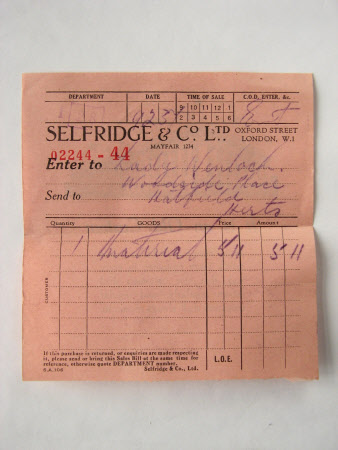 DEPARTMENT DATE TIME OF SALE C.O.D., ENTER, &c.
9 10 11 12 1
2 3 4 5 6
SELFRIDGE & Co. LTD. OXFORD STREET
LONDON, W.1
MAYFAIR 1234
02244 - 44
Enter to Lady
Woodside Place
Send to Hatfield
Herts
Quantity GOODS Price Amount
1 Material 5/11 5 11
CUSTOMER
If this purchase is returned, or enquiries are made respecting
it, please send or bring this Sales Bill at the same time for
reference, otherwise quote DEPARTMENT number.
Selfridge & Co., Ltd.
L.O.E.